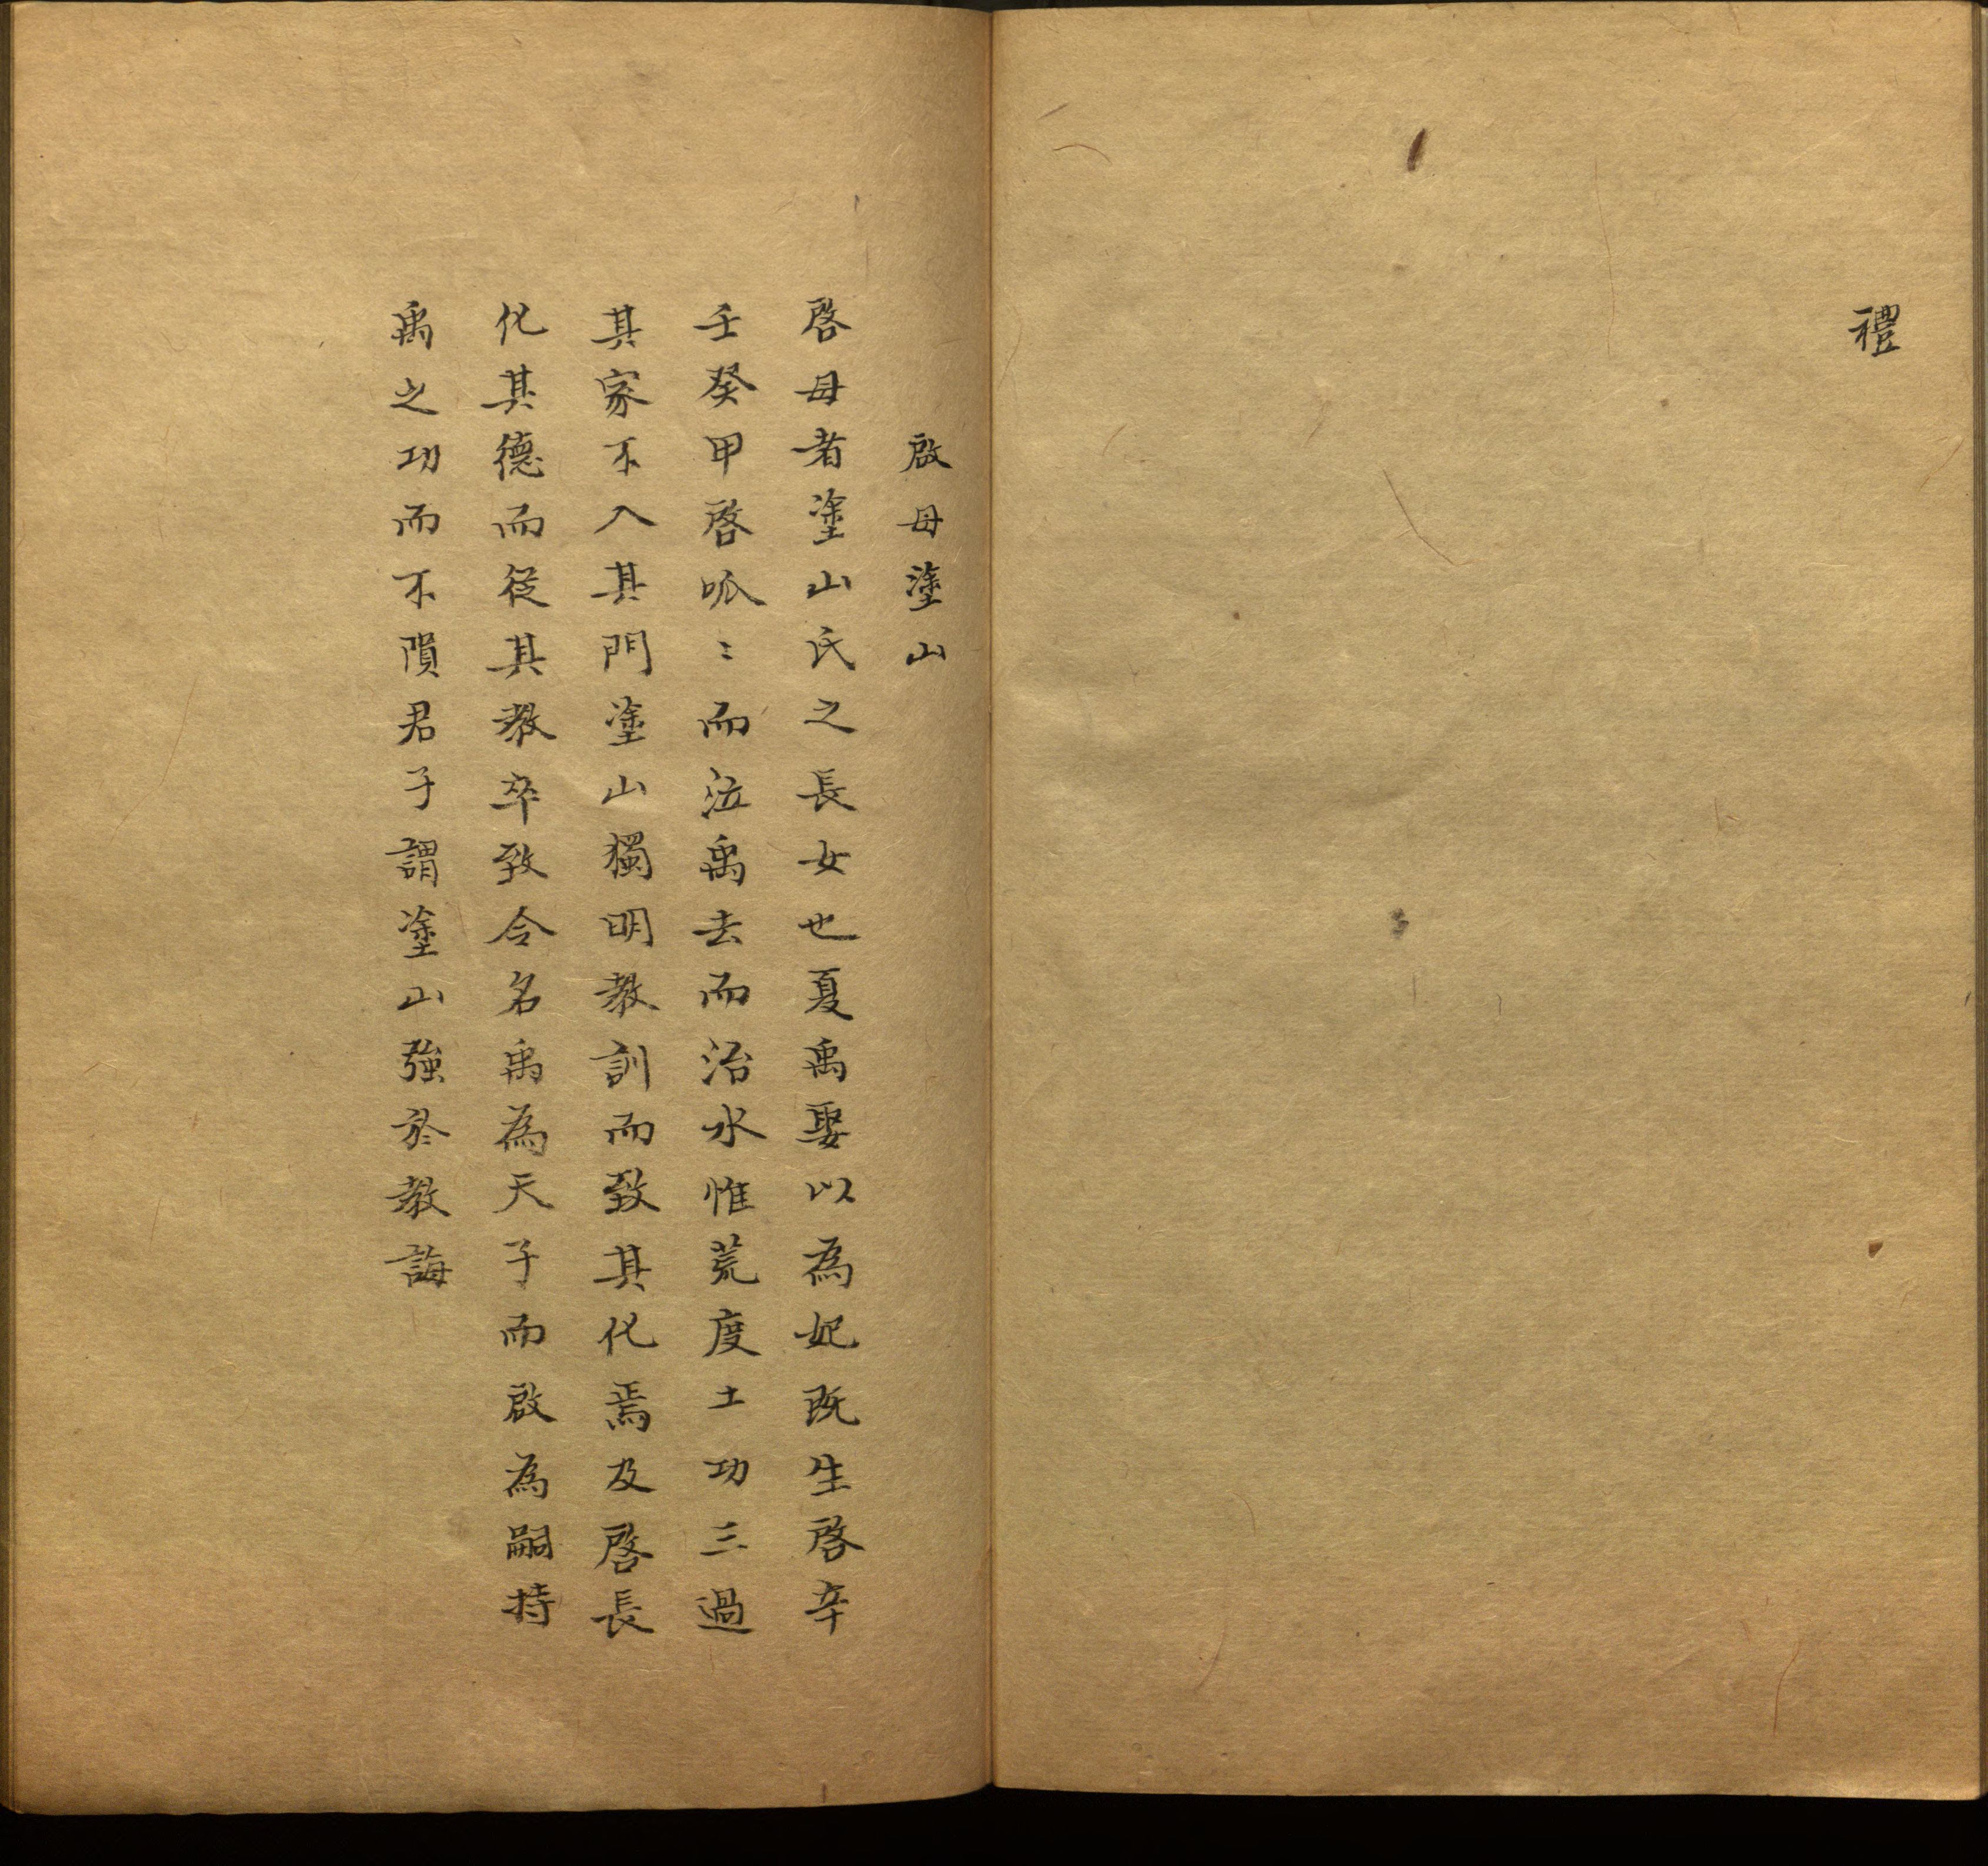 禮
啟母塗山
啓母者塗山氏之長女也夏禹娶以為妃既生啓辛
壬癸甲啓呱〻而泣禹去而治水惟荒度土功三過
其家不入其門塗山獨明教訓而致其化焉及啓長
化其德而從其教卒致令名禹為天子而啟為嗣持
禹之功而不隕君子謂塗山強於教誨